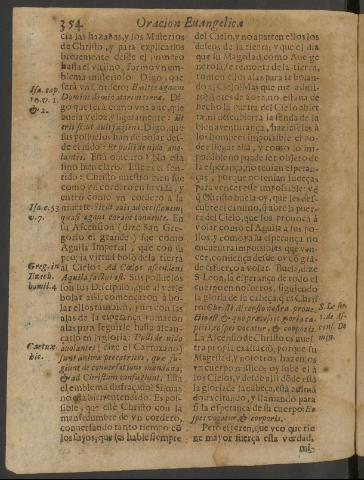 354 Oracion Evangelica
cia las hazañas, y los Misterios
de Christo, y para explicarlos
brevemente desde el primero
hasta el vltimo, formò vn em-
blema misterioso. Digo, que
serà vn Cordero: Emitte agnum
Domine dominatorem terræ. Di-
go que serà como vna ave, que
buela veloz, y ligeramente: Et
erit sicut avis fugiens. Digo, que
sus polluelos han de bolar des-
de el nido: Et pulli de nido avo-
lantes. Està obscuro? No està
sino bien claro. Este es el sen-
tido: Christo nuestro bien fue
como vn cordero en su vida, y
entrò como vn cordero à la
muerte: Sicut ovis ad occissionem,
quasi agnus coram tondente. En
su Ascension (dize San Gre-
gorio el grande) fue como
Aguila Imperial, que con su
propia virtud bolò de la tierra
al Cielo: Ad Cælos ascendens
Aquila factus est. Sus polluelos
son sus Discipulos, que al ver le
bolar assi, començaron à bo-
lar ellos tambien, pues con las
alas de la esperança tomaron
alas para seguirle hasta alcan-
carlo en la gloria: Pulli de nido
avolantes (dize el Cartuxano)
sunt animæ præcatrices, quæ fu-
giunt de conversatione mundana,
& ad Christum confugiunt. Està
el emblema disfraçado? Si: mas
no està bien entendido. Es pos-
sible, que este Christo con la
mansedumbre de vn cordero,
conversando tanto tiempo cõ
los suyos, que les hable siempre
del Cielo, y no aparten ellos los
deseos de la tierra; y que el dia
que su Magestad, como Ave ge-
nerosa, se remonta de la tierra,
tomen ellos alas para ir bolan-
do al Cielo? Mas que me admi-
ro? Antes de aora, no estava de
hecho la puerta del Cielo abier-
ta, ni descubierta la senda de la
bienaventurança, haziaseles à
los hombres impossible el po-
der llegar allà, y como lo im-
possible no puede ser objeto de
la esperança, no tenian esperan-
ças, porque no tenian fuerças
para vencer este impossible: vè
q̃ Christo buela, y q̃ les dà la
mano, q̃ dexa abierta la puer-
ta del Cielo, que los provoca à
volar como el Aguila à sus po-
llos, y como ya la esperança no
encuentra impossibles que ven-
cer, comiença desde oy cõ grã-
de esfuerço à volar. Buela, dize
S. Leon, la esperança de todo el
cuerpo en nosotros, siguiendo
la gloria de su cabeça, q̃ es Chris-
to: Christi Ascensio nostra provec-
tio est, & quo præcessit gloria ca-
pitis, eò spes vocatur, & corporis.
La Ascension de Christo es nues-
tra propia exaltacion, porque su
Magestad, y nosotros hazemos
vn cuerpo mistico; oy sube èl à
los Cielos, y desde alli dõde està
la gloria de la cabeça, està aními-
do, y excitando, y llamando para
si la esperança de su cuerpo: Eo
spes vocatur, & corporis.
Pero esperen, que veo que tie-
ne mayor fuerça esta verdad,
Isa. cap.
16. v. 1.
& 2.
Isa. c. 53
v. 7.
Greg. in
Ezech.
homil. 4
Cartux.
hic.
S. Leo ser.
de As-
cens. Do-
min.